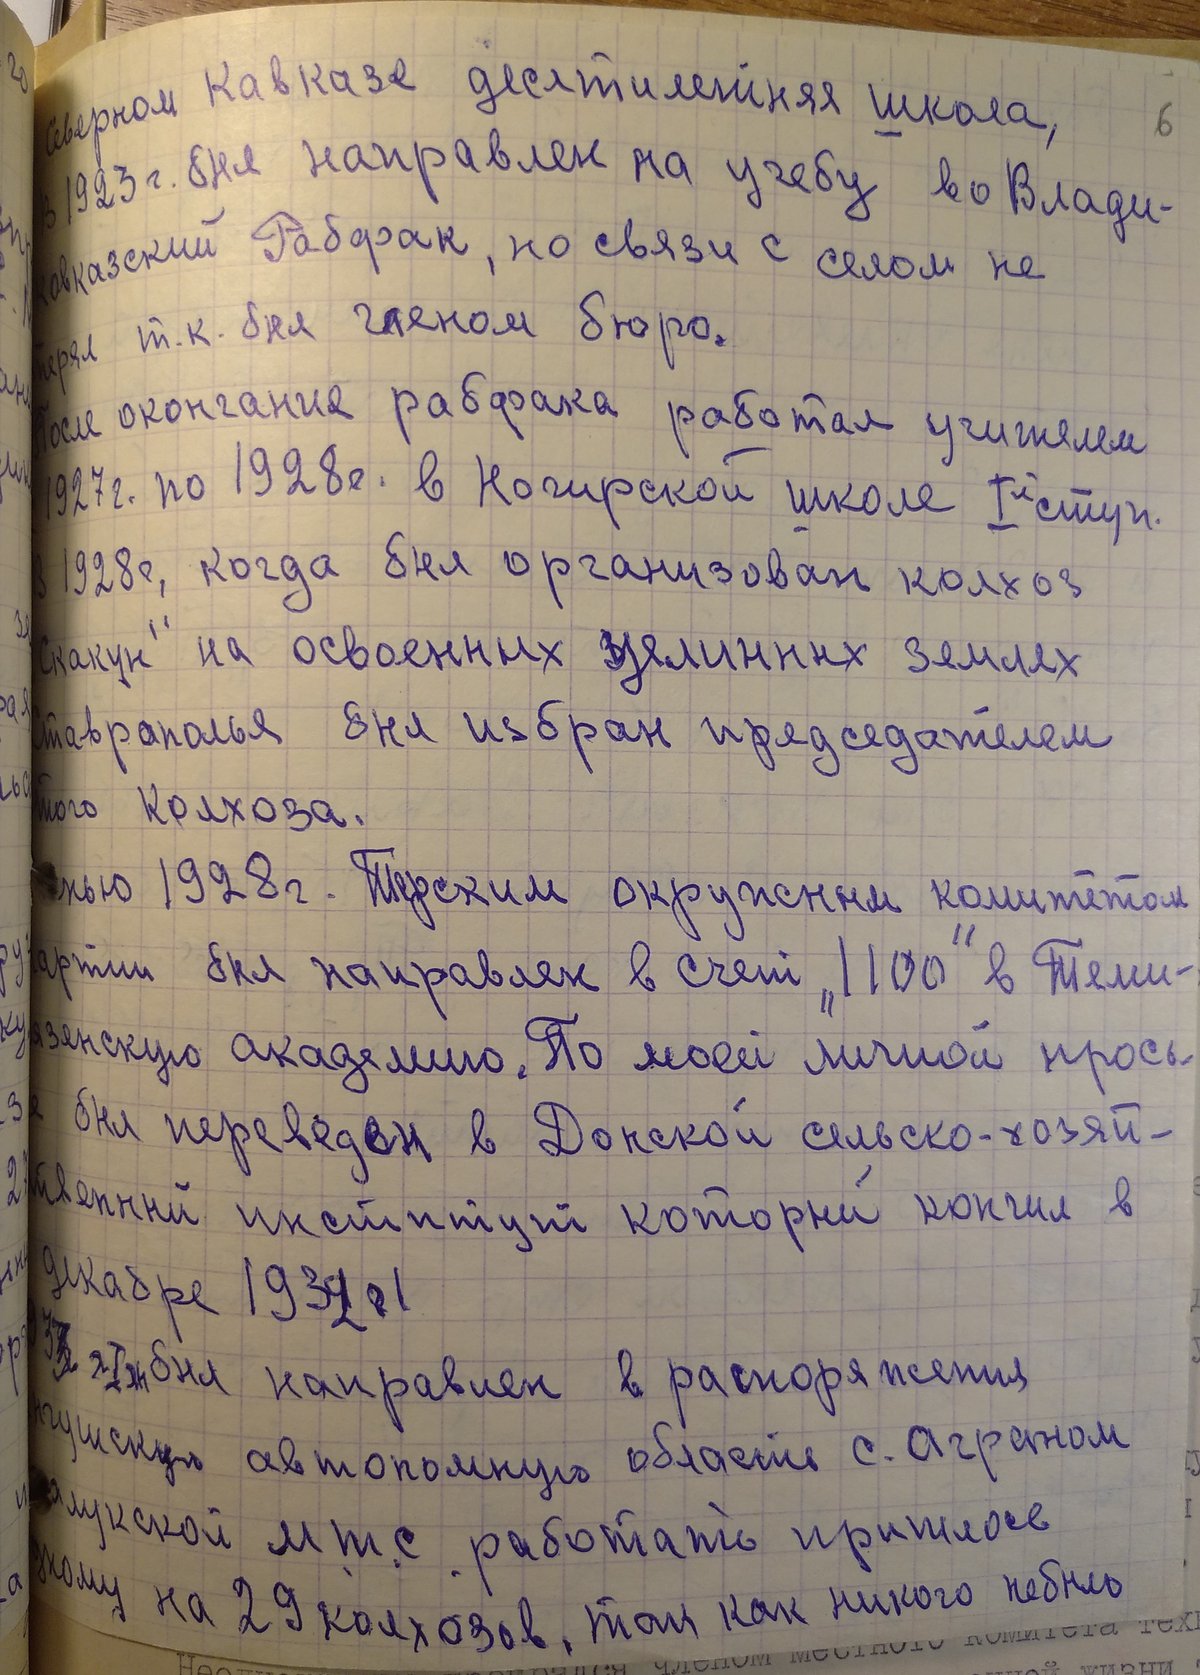 6
Северном Кавказе десятилетняя школа,
в 1923 г. был направлен на учебу во Влади-
кавказский Рабфак, но связи с селом не
терял т.к. был членом бюро.
После окончание рабфака работал учителем
1927 г. по 1928 г. в Ногирской школе I й ступ.
в 1928 г, когда был организован колхоз
Скакун" на освоенных целинных землях
Ставраполья был избран председателем
этого колхоза.
1928 г. Терским окружным комитетом
партии был направлен в счет „1100" в Теми-
язевскую академию. По моей личной прось-
был переведен в Донской сельско-хозяй-
ственный институт который кончил в
декабре 1932
был направлен в распоряжения
Ингушскую автономную область с. аграном
МТС. работать пришлось
одному на 29 колхозов, так как никого небыло
членом местного комитета